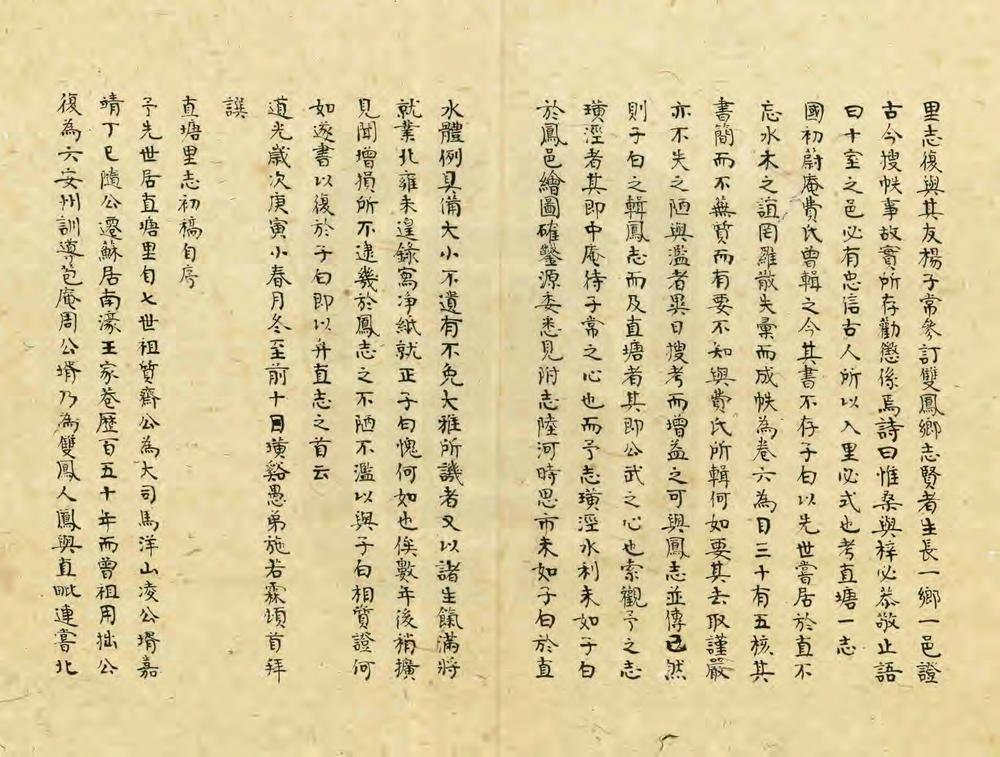 里志復與其友楊子常參訂雙鳳鄉志賢者生長一鄉一邑證
古今搜帙事故實所存勸懲係焉詩曰惟桑與梓必恭敬止語
曰十室之邑必有忠信古人所以入里必式也考直塘一志
國初蔚庵費氏曾輯之今其書不存子白以先世嘗居於直不
忘水木之誼罔羅散失彙而成帙為卷六為目三十有五核其
書簡而不蕪質而有要不知與費氏所輯何如要其去取謹嚴
亦不失之陋與濫者異日搜考而增益之可與鳳志並傳已然
則子白之輯鳳志而及直塘者其即公武之心也索觀予之志
璜涇者其即中庵待子常之心也而予志璜涇水利未如子白
於鳳邑繪圖確鑿源委悉見附志陸河時思市未如子白於直
水體例具備大小不遺有不免大雅所譏者又以諸生餼滿將
就業北雍未遑錄寫淨紙就正子白愧何如也俟數年後稍擴
見聞增損所不逮幾於鳳志之不陋不濫以與子白相質證何
如遂書以復於子白即以弁直志之首云
道光歲次庚寅小春月冬至前十日璜谿愚弟施若霖頓首拜
譔
直塘里志初稿自序
予先世居直塘里自七世祖質齋公為大司馬洋山凌公壻嘉
靖丁巳隨公遷蘇居南濠王家巷歷百五十年而曾祖用拙公
復為六安州訓導苞庵周公壻乃為雙鳳人鳳與直毗連嘗北